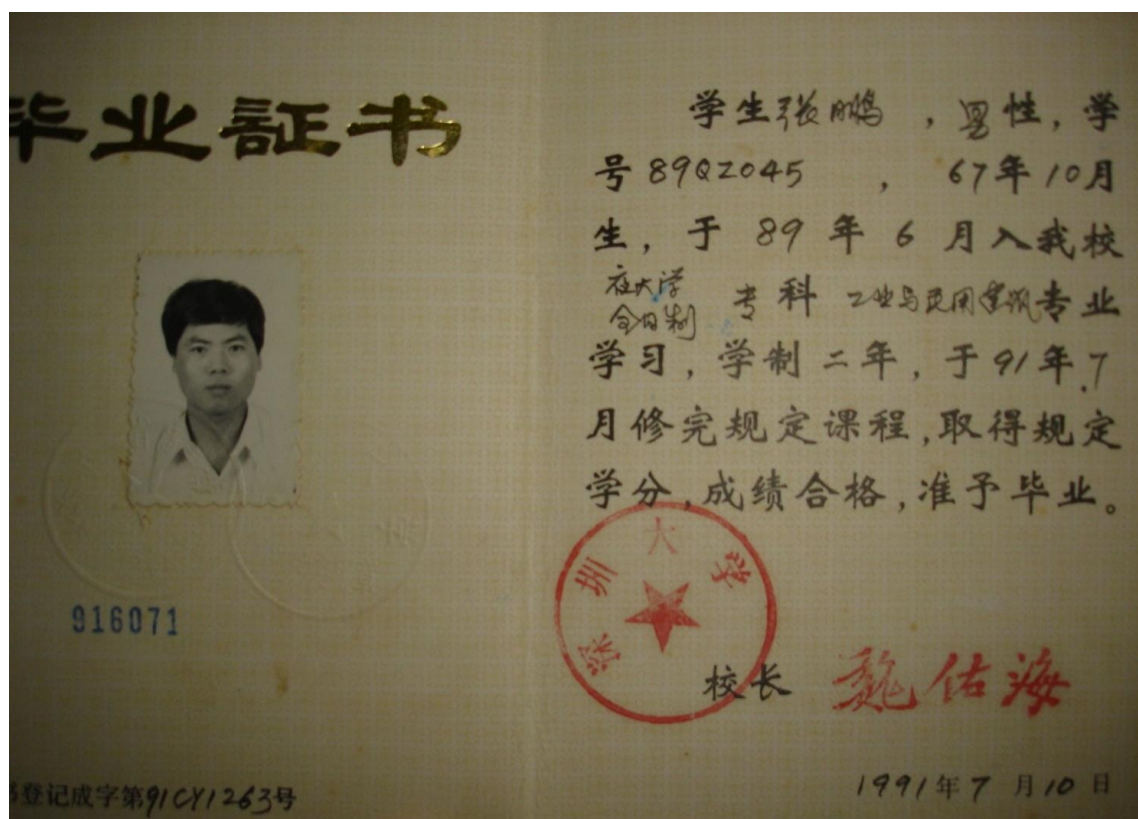 毕业証书
916071
登记成字第91CY1263号
学生张鹏，男性，学
号89QZ045，67年10月
生，于89年6月入我校
在大学
全日制
专科 工业与民用建筑专业
学习，学制二年，于91年7
月修完规定课程，取得规定
学分，成绩合格，准予毕业。
深圳大学
校长 魏佑海
1991年7月10日